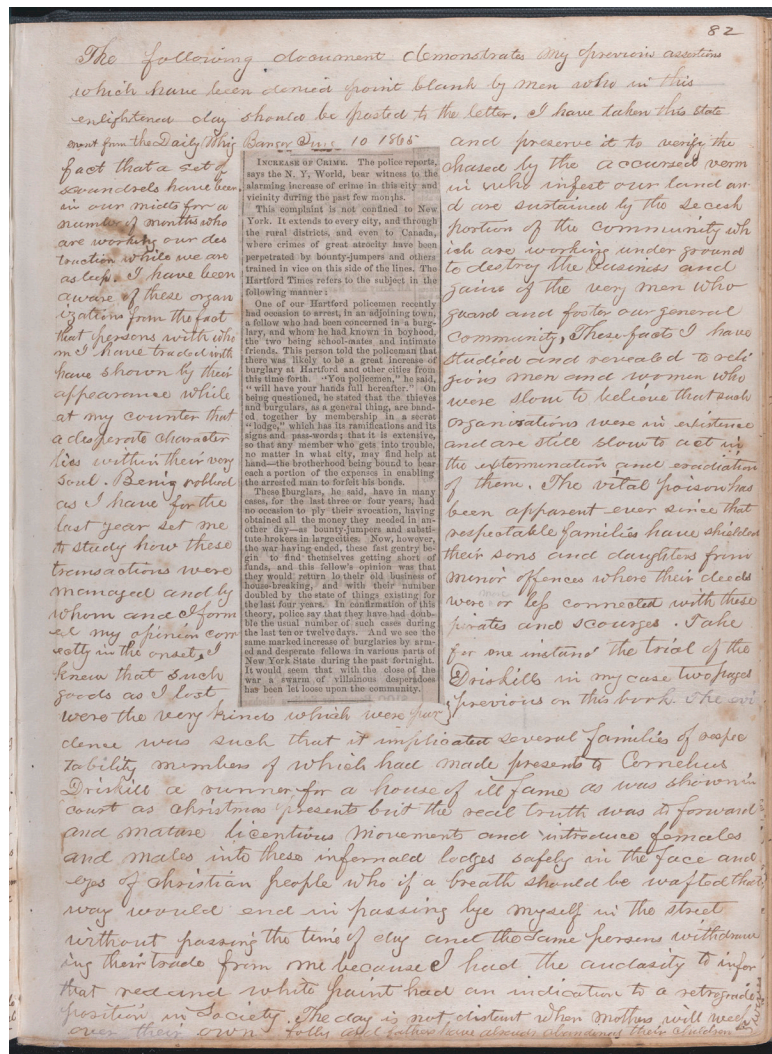 82
The following document demonstrates my previous assertions
which have been denied point blank by men who in this
enlightened day should be posted to the letter. I have taken this state
ment from the Daily Whig Bangor June 10 1865
fact that a set of
scoundrels have been
in our midts for a
number of months who
are working our des
truction while we are
asleep. I have been
aware of these organ
izations from the fact
that persons with who
m I have traded with
have shown by their
appearance while
at my counter that
a desperate character
lies within their very
soul. Being robbed
as I have for the
last year set me
to study how these
transactions were
managed and by
whom and I form
ed my opinion corr
ectly in the onset. I
knew that such
goods as I lost
were the very kinds which were pur
INCREASE OF CRIME. The police reports,
says the N. Y. World, bear witness to the
alarming increase of crime in this city and
vicinity during the past few months.
This complaint is not confined to New
York. It extends to every city, and through
the rural districts, and even to Canada,
where crimes of great atrocity have been
perpetrated by bounty-jumpers and others
trained in vice on this side of the lines. The
Hartford Times refers to the subject in the
following manner:
One of our Hartford policemen recently
had occasion to arrest, in an adjoining town,
a fellow who had been concerned in a burg-
lary, and whom he had known in boyhood,
the two being school-mates and intimate
friends. This person told the policeman that
there was likely to be a great increase of
burglary at Hartford and other cities from
this time forth. "You policemen," he said,
"will have your hands full hereafter." On
being questioned, he stated that the thieves
and burgulars, as a general thing, are band-
ed together by membership in a secret
"lodge," which has its ramifications and its
signs and pass-words; that it is extensive,
so that any member who gets into trouble,
no matter in what city, may find help at
hand—the brotherhood being bound to bear
each a portion of the expenses in enabling
the arrested man to forfeit his bonds.
These burglars, he said, have in many
cases, for the last three or four years, had
no occasion to ply their avocation, having
obtained all the money they needed in an-
other day—as bounty-jumpers and substi-
tute brokers in largecities. Now, however,
the war having ended, these fast gentry be-
gin to find themselves getting short of
funds, and this fellow's opinion was that
they would return to their old business of
house-breaking, and with their number
doubled by the state of things existing for
the last four years. In confirmation of this
theory, police say that they have had doub-
ble the usual number of such cases during
the last ten or twelve days. And we see the
same marked increase of burglaries by arm-
ed and desperate fellows in various parts of
New York State during the past fortnight.
It would seem that with the close of the
war a swarm of villainous desperadoes
has been let loose upon the community.
and preserve it to verify the
chased by the accursed verm
in who infest our land an
d are sustained by the secesh
portion of the community wh
ich are working under ground
to destroy the business and
gains of the very men who
guard and foster our general
community, These facts I have
studied and revealed to reli
gious men and women who
were slow to believe that such
organizations were in existence
and are still slow to act in
the extermination and eradiation
of them. The vital poison has
been apparent ever since that
respectable families have shielded
their sons and daughters from
minor offences where their deeds
were more or less connected with these
pirates and scourges. Take
for one instand the trial of the
Driskills in my case two pages
previous on this book. The evi
dence was such that it implicated several families of respec
tability, members of which had made presents to Cornelius
Driskill a runner for a house of ill fame as was shown in
court as christmas presents but the real truth was to forward
and mature licentious movement and introduce females
and males into these infernald lodges safely in the face and
eyes of christian people who if a breath should be wafted that
way would end in passing bye myself in the street
without passing the time of day and the same persons withdraw
ing their trade from me because I had the audasity to infor
that red and white paint had an indication to a retrograde
position in society. The day is not distant when mothers will weep
over their own folly and fathers have already abandoned their children